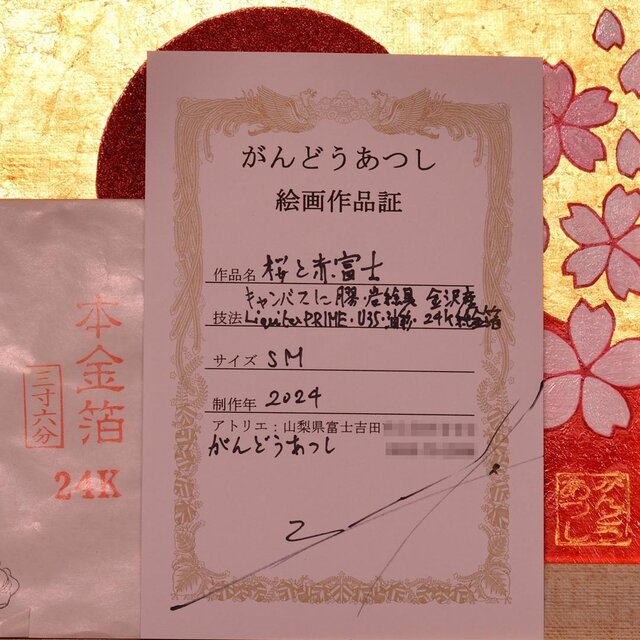 がんどうあつし
絵画作品証
作品名 桜と赤富士
キャンバスに膠・岩絵具 金沢産
技法 Liquitex PRIME・U35・油彩・24K純金箔
サイズ SM
制作年 2024
アトリエ:山梨県富士吉田
がんどうあつし
本金箔
三寸六分
24K
がんどう
あつし